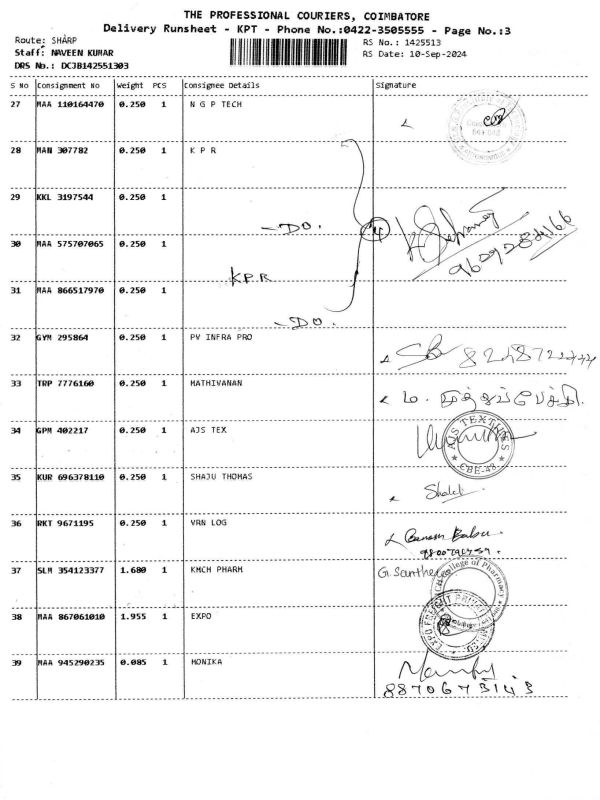 THE PROFESSIONAL COURIERS, COIMBATORE
Delivery Runsheet - KPT - Phone No.:0422-3505555 - Page No.:3
Route: SHARP
RS No.: 1425513
Staff: NAVEEN KUMAR
RS Date: 10-Sep-2024
DRS No.: DCJB142551303
S No Consignment No Weight PCS Consignee Details Signature
27 MAA 110164470 0.250 1 N G P TECH
28 MAN 307782 0.250 1 K P R
29 KKL 3197544 0.250 1
-DO.
4
9629284166
30 MAA 575707065 0.250 1
KPR
31 MAA 866517970 0.250 1
-DO.
32 GYM 295864 0.250 1 PV INFRA PRO
33 TRP 7776160 0.250 1 MATHIVANAN
34 GPM 402217 0.250 1 AJS TEX
AJS TEXTILES
CBE-48
35 KUR 696378110 0.250 1 SHAJU THOMAS
36 RKT 9671195 0.250 1 VRN LOG
37 SLM 354123377 1.680 1 KMCH PHARM
College of Pharmacy
38 MAA 867061010 1.955 1 EXPO
EXPO FREIGHT
39 MAA 945290235 0.085 1 MONIKA
8870673143